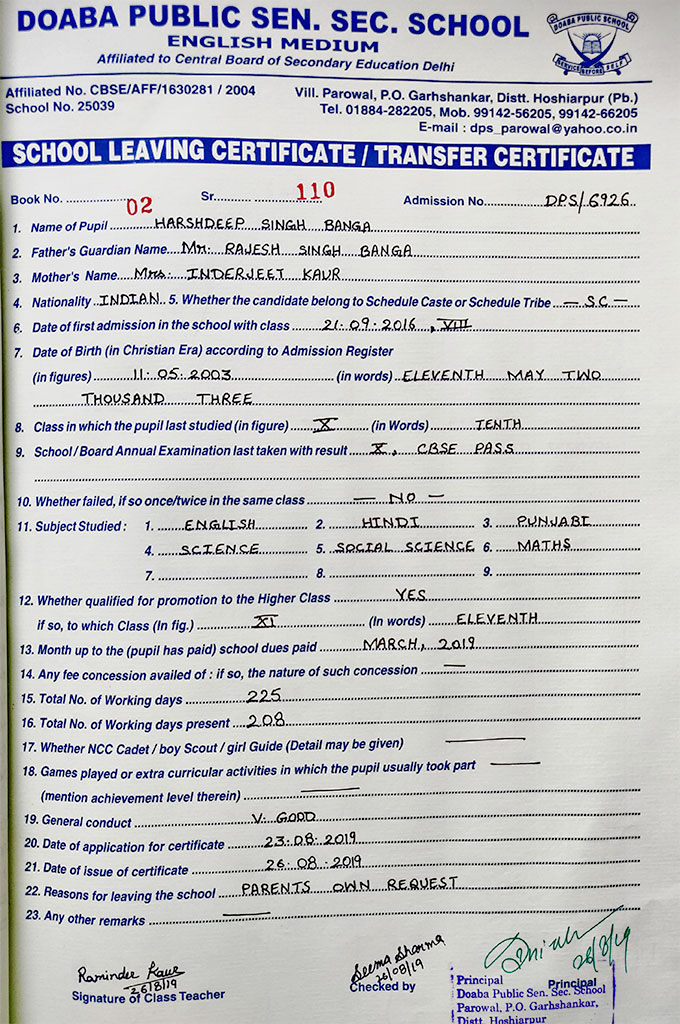 DOABA PUBLIC SEN. SEC. SCHOOL
ENGLISH MEDIUM
Affiliated to Central Board of Secondary Education Delhi
DOABA PUBLIC SCHOOL
SERVICE BEFORE SELF
Affiliated No. CBSE/AFF/1630281 / 2004
School No. 25039
Vill. Parowal, P.O. Garhshankar, Distt. Hoshiarpur (Pb.)
Tel. 01884-282205, Mob. 99142-56205, 99142-66205
E-mail : dps_parowal@yahoo.co.in
SCHOOL LEAVING CERTIFICATE / TRANSFER CERTIFICATE
Book No. 02 Sr. 110 Admission No. DPS/6926
1. Name of Pupil HARSHDEEP SINGH BANGA
2. Father's Guardian Name Mr. RAJESH SINGH BANGA
3. Mother's Name Mrs. INDERJEET KAUR
4. Nationality INDIAN 5. Whether the candidate belong to Schedule Caste or Schedule Tribe — S.C —
6. Date of first admission in the school with class 21.09.2016, VIII
7. Date of Birth (in Christian Era) according to Admission Register
(in figures) 11.05.2003 (in words) ELEVENTH MAY TWO
THOUSAND THREE
8. Class in which the pupil last studied (in figure) X (in Words) TENTH
9. School / Board Annual Examination last taken with result X, CBSE PASS
10. Whether failed, if so once/twice in the same class — NO —
11. Subject Studied : 1. ENGLISH 2. HINDI 3. PUNJABI
4. SCIENCE 5. SOCIAL SCIENCE 6. MATHS
7. 8. 9.
12. Whether qualified for promotion to the Higher Class YES
if so, to which Class (In fig.) XI (In words) ELEVENTH
13. Month up to the (pupil has paid) school dues paid MARCH, 2019
14. Any fee concession availed of : if so, the nature of such concession —
15. Total No. of Working days 225
16. Total No. of Working days present 208
17. Whether NCC Cadet / boy Scout / girl Guide (Detail may be given) —
18. Games played or extra curricular activities in which the pupil usually took part —
(mention achievement level therein) —
19. General conduct V. GOOD
20. Date of application for certificate 23.08.2019
21. Date of issue of certificate 26.08.2019
22. Reasons for leaving the school PARENTS OWN REQUEST
23. Any other remarks —
Raminder Kaur
26/8/19
Signature of Class Teacher
Seema Sharma
26/08/19
Checked by
26/8/19
Principal
Principal
Doaba Public Sen. Sec. School
Parowal, P.O. Garhshankar,
Distt. Hoshiarpur